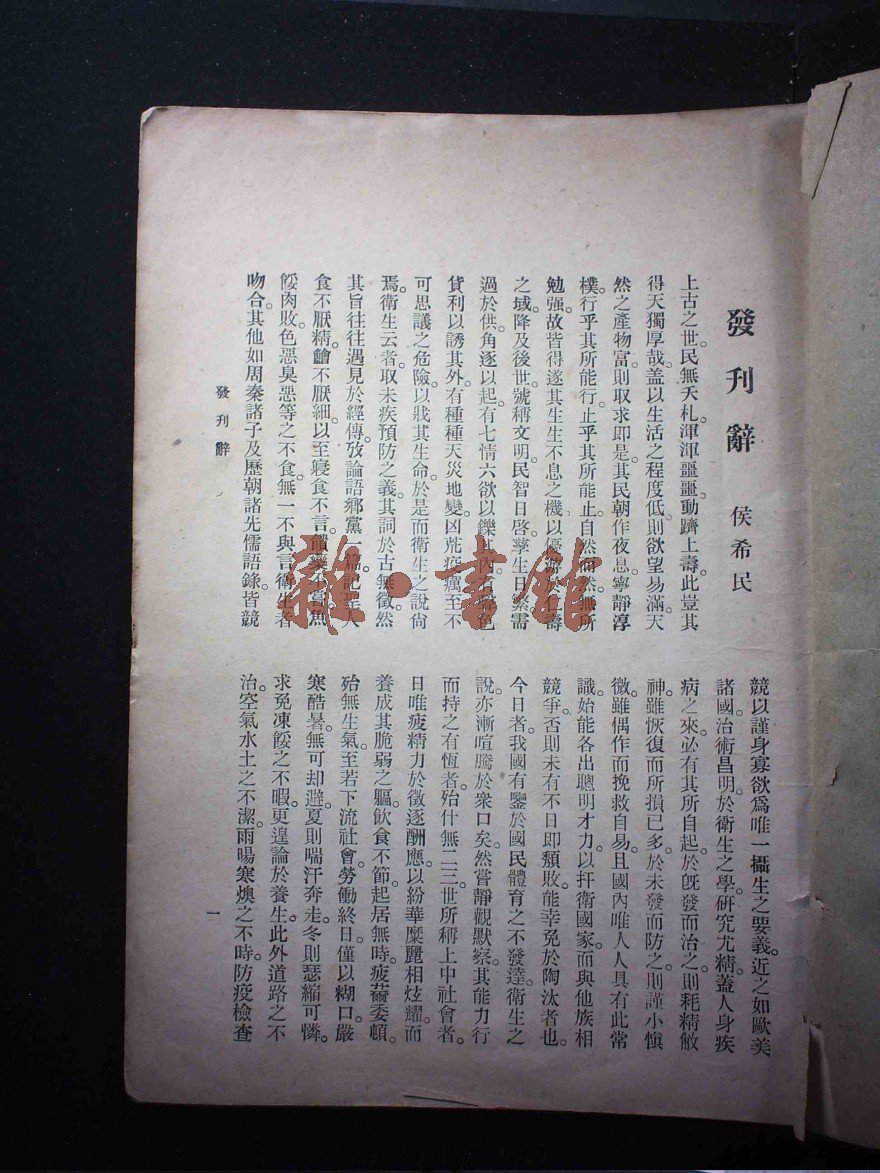 發刊辭
侯希民
上古之世民無夭札。渾渾噩噩。動躋上壽。此豈其
得天獨厚哉。蓋以生活之程度低。則欲望易滿。天
然之產物富。則取求即是。其民朝作夜息。寧靜淳
樸。行乎其所能行。止乎其所能止。自然而然。無所
勉强。故皆得遂其生生不息之機。以優游於仁壽
之域。降及後世。號稱文明。民智日啓。孳生日繁。需
過於供。角逐以起。有七情六欲以鑠其內。有聲色
貨利以誘其外。有種種天災地變。凶荒疫癘。至不
可思議之危險。以戕其生命。於是而衛生之說尙
焉。衛生云者。取未疾預防之義。其詞於古無徵。然
其旨往往遇見於經傳。攷論語鄉黨一篇。記聖人
食不厭精。膾不厭細。以至寢食不言。饋藥不嘗。魚
餒肉敗。色惡臭惡等之不食。無一不與言衛生者
吻合。其他如周秦諸子及歷朝諸先儒語錄。皆競
競以謹身寡欲爲唯一攝生之要義。近之如歐美
諸國。治術昌明。於衛生之學。研究尤精。蓋人身疾
病之來。必有其所自起。於旣發而治之。則耗精敝
神。雖恢復而所損已多。於未發而防之。則謹小愼
微。雖偶作而挽救自易。且國內唯人人具有此常
識。始能各出聰明才力。以扞衛國家。而與他族相
競爭。否則未有不日即頹敗。能幸免於陶汰者也。
今日者。我國有鑒於國民體育之不發達。衛生之
說。亦漸喧騰於衆口矣。然嘗靜觀默察。其能力行
而持之有恆者。殆什無二三。世所稱上中社會者。
日唯疲精力於徵逐酬應。以紛華糜麗相炫耀。而
養成其脆弱之軀。飮食不節。起居無時。疲薾委頓。
殆無生氣。至若下流社會。勞働終日。僅以糊口。嚴
寒酷暑。無可却避。夏則喘汗奔走。冬則瑟縮可憐。
求免凍餒之不暇。更遑論於養生。此外道路之不
治。空氣水土之不潔。雨暘寒燠之不時。防疫檢查
發刊辭
一
雜·書館